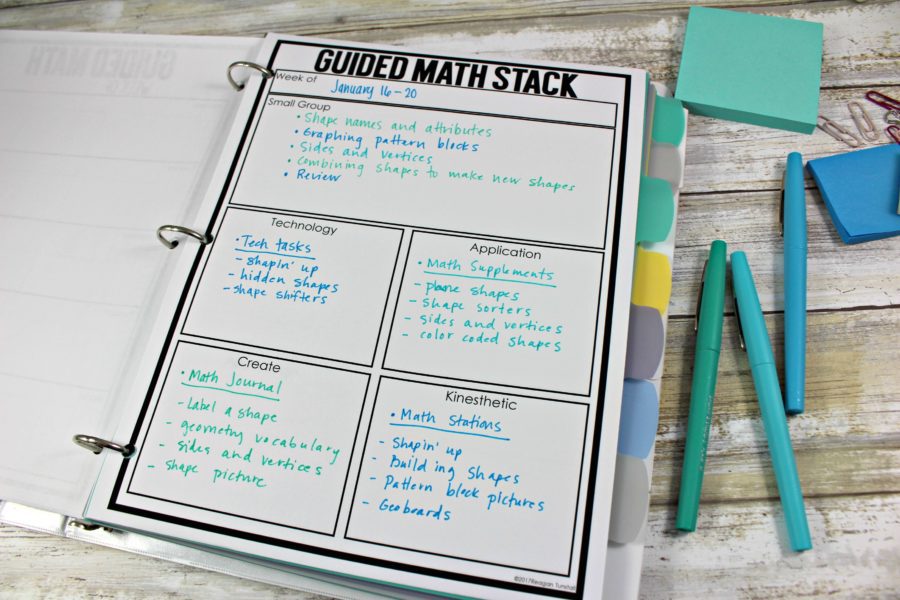 GUIDED MATH STACK
Week of January 16-20
Small Group
• Shape names and attributes
• Graphing pattern blocks
• Sides and vertices
• Combining shapes to make new shapes
• Review
Technology
• Tech tasks
- Shapin' up
- hidden shapes
- shape shifters
Application
• Math Supplements
- plane shapes
- Shape sorters
- sides and vertices
- color coded shapes
Create
• Math Journal
- Label a shape
- geometry vocabulary
- sides and vertices
- shape picture
Kinesthetic
• Math Stations
- Shapin' up
- Building shapes
- Pattern block pictures
- Geoboards
©2017Reagan Tunstall
GUIDED MATH